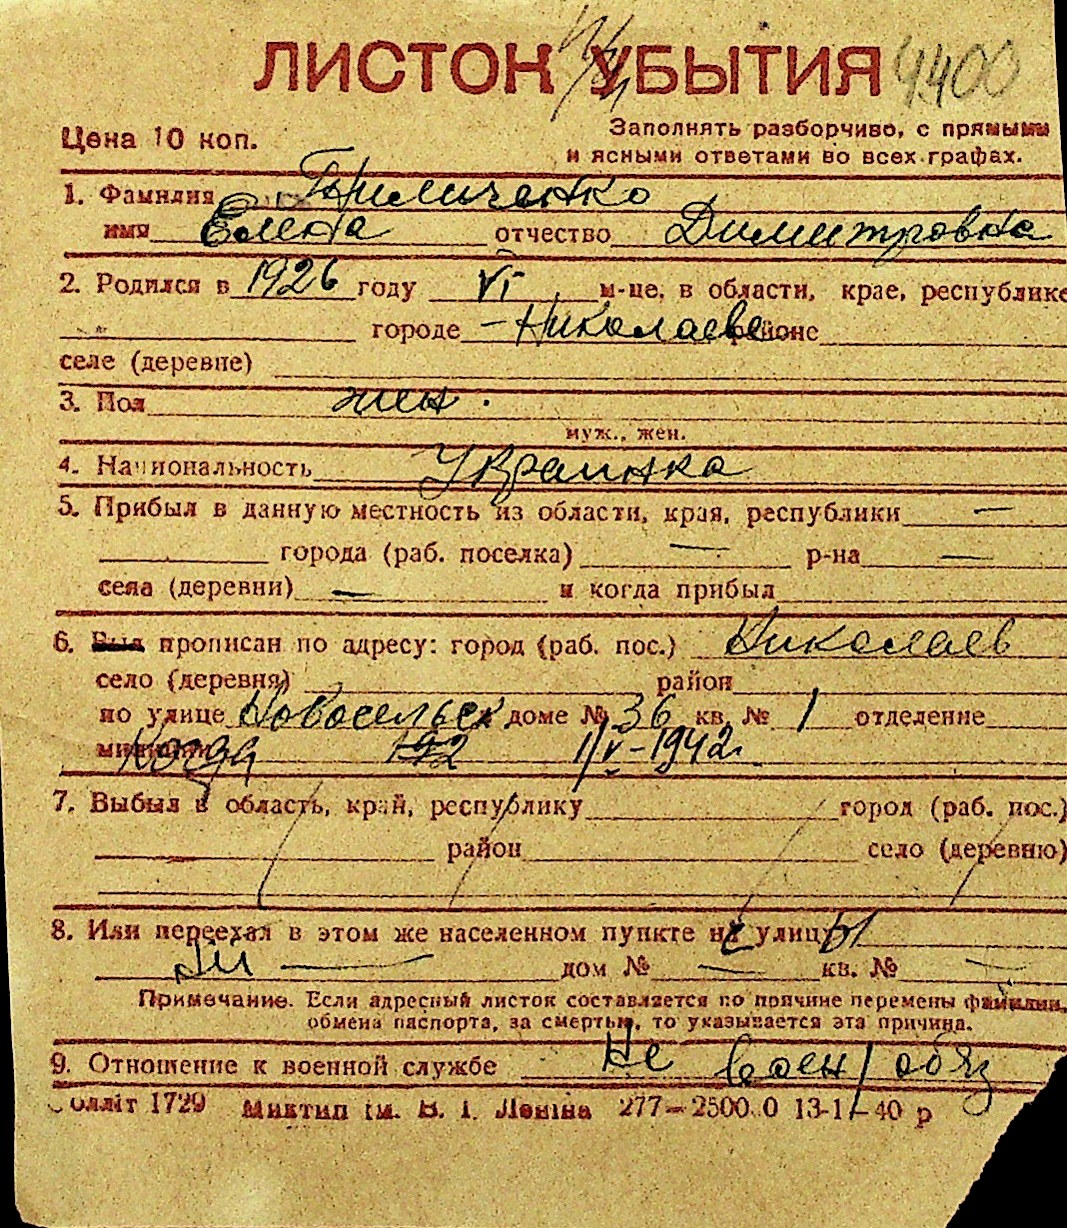 ЛИСТОК УБЫТИЯ 4400
Цена 10 коп.
Заполнять разборчиво, с прямыми
и ясными ответами во всех графах.
1. Фамилия Гриличенко
имя Елена отчество Димитровна
2. Родился в 1926 году VI м-це, в области, крае, республике
городе – Николаеве районе
селе (деревне)
3. Пол жен.
муж., жен.
4. Национальность Украинка
5. Прибыл в данную местность из области, края, республики —
города (раб. поселка) — р-на —
села (деревни) — и когда прибыл
6. Был прописан по адресу: город (раб. пос.) Николаев
село (деревня) район
по улице Новосельск доме № 36 кв. № 1 отделение
милиции Когда 192 1/V-1942г.
7. Выбыл в область, край, республику город (раб. пос.)
район село (деревню)
8. Или переехал в этом же населенном пункте на улицу
— дом № — кв. № —
Примечание. Если адресный листок составляется по причине перемены фамилии,
обмена паспорта, за смертью, то указывается эта причина.
9. Отношение к военной службе Не воен/обяз
олліт 1729 Миктип ім. В. І. Леніна 277—2500.0 13-1—40 р